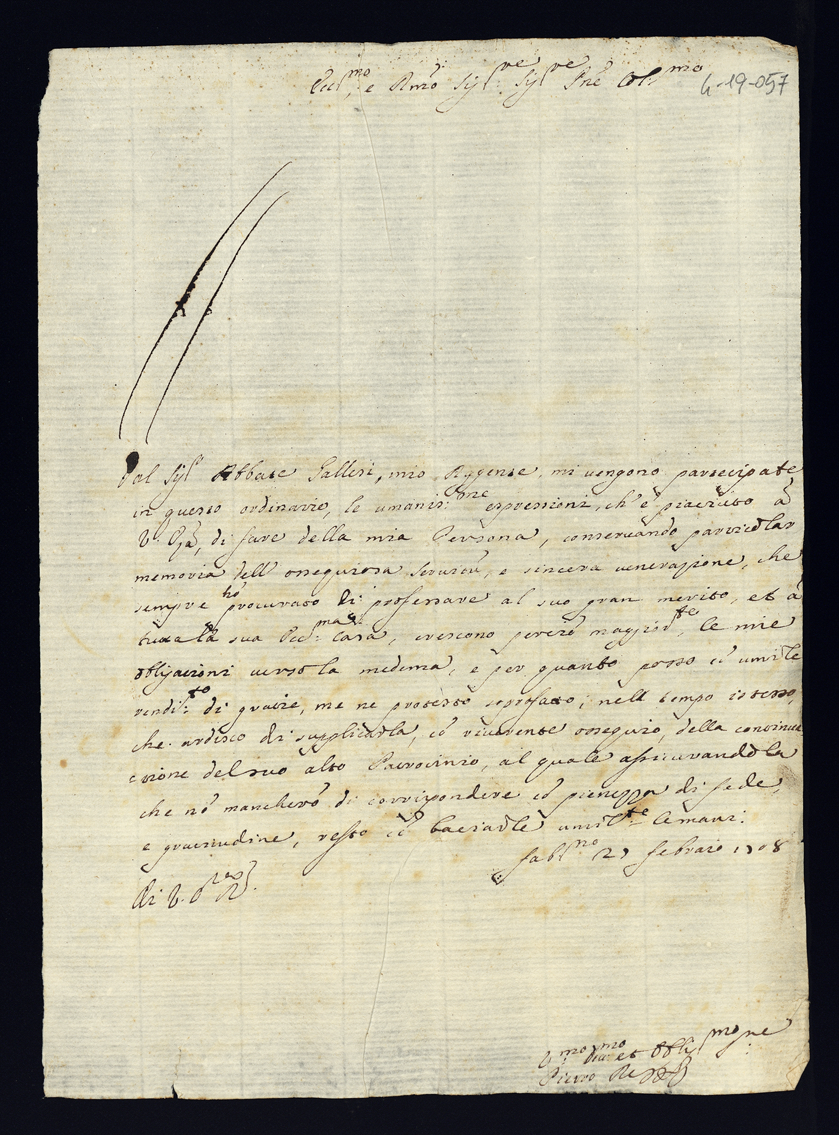 Ecc:mo, e Rmo Sig:re Sig:re Pne Col:mo
4-19-057
Dal Sig:r Abbate Galleri, mio Aggente, mi vengono partecipate
in questo ordinario, le umaniss:me espressioni, ch' è piacciuto à
V. Ecc.za, di fare della mia Persona, conservando particolar
memoria dell' ossequiosa servitù, e sincera venerazione, che
sempre hò procurato di professare al suo gran merito, et à
tutta la sua Ecc:ma Casa, crescono perciò maggiorm:te le mie
obligazioni verso la medema, e per quanto posso cò umile
rendi:to di grazie, me ne protesto soprafatto; nell tempo istesso,
che ardisco di supplicarla, cò riverente ossequio, della continua
zione del suo alto Patrocinio, al quale assicurandola
che nò mancherò di corrispondere cò pienezza di fede,
e gratitudine, resto cò baciarle umil:te le mani:
Fab:no 27 Febraio 1708
di V. E. R.
V:mo Diu:mo et Obli:mo
Pietro